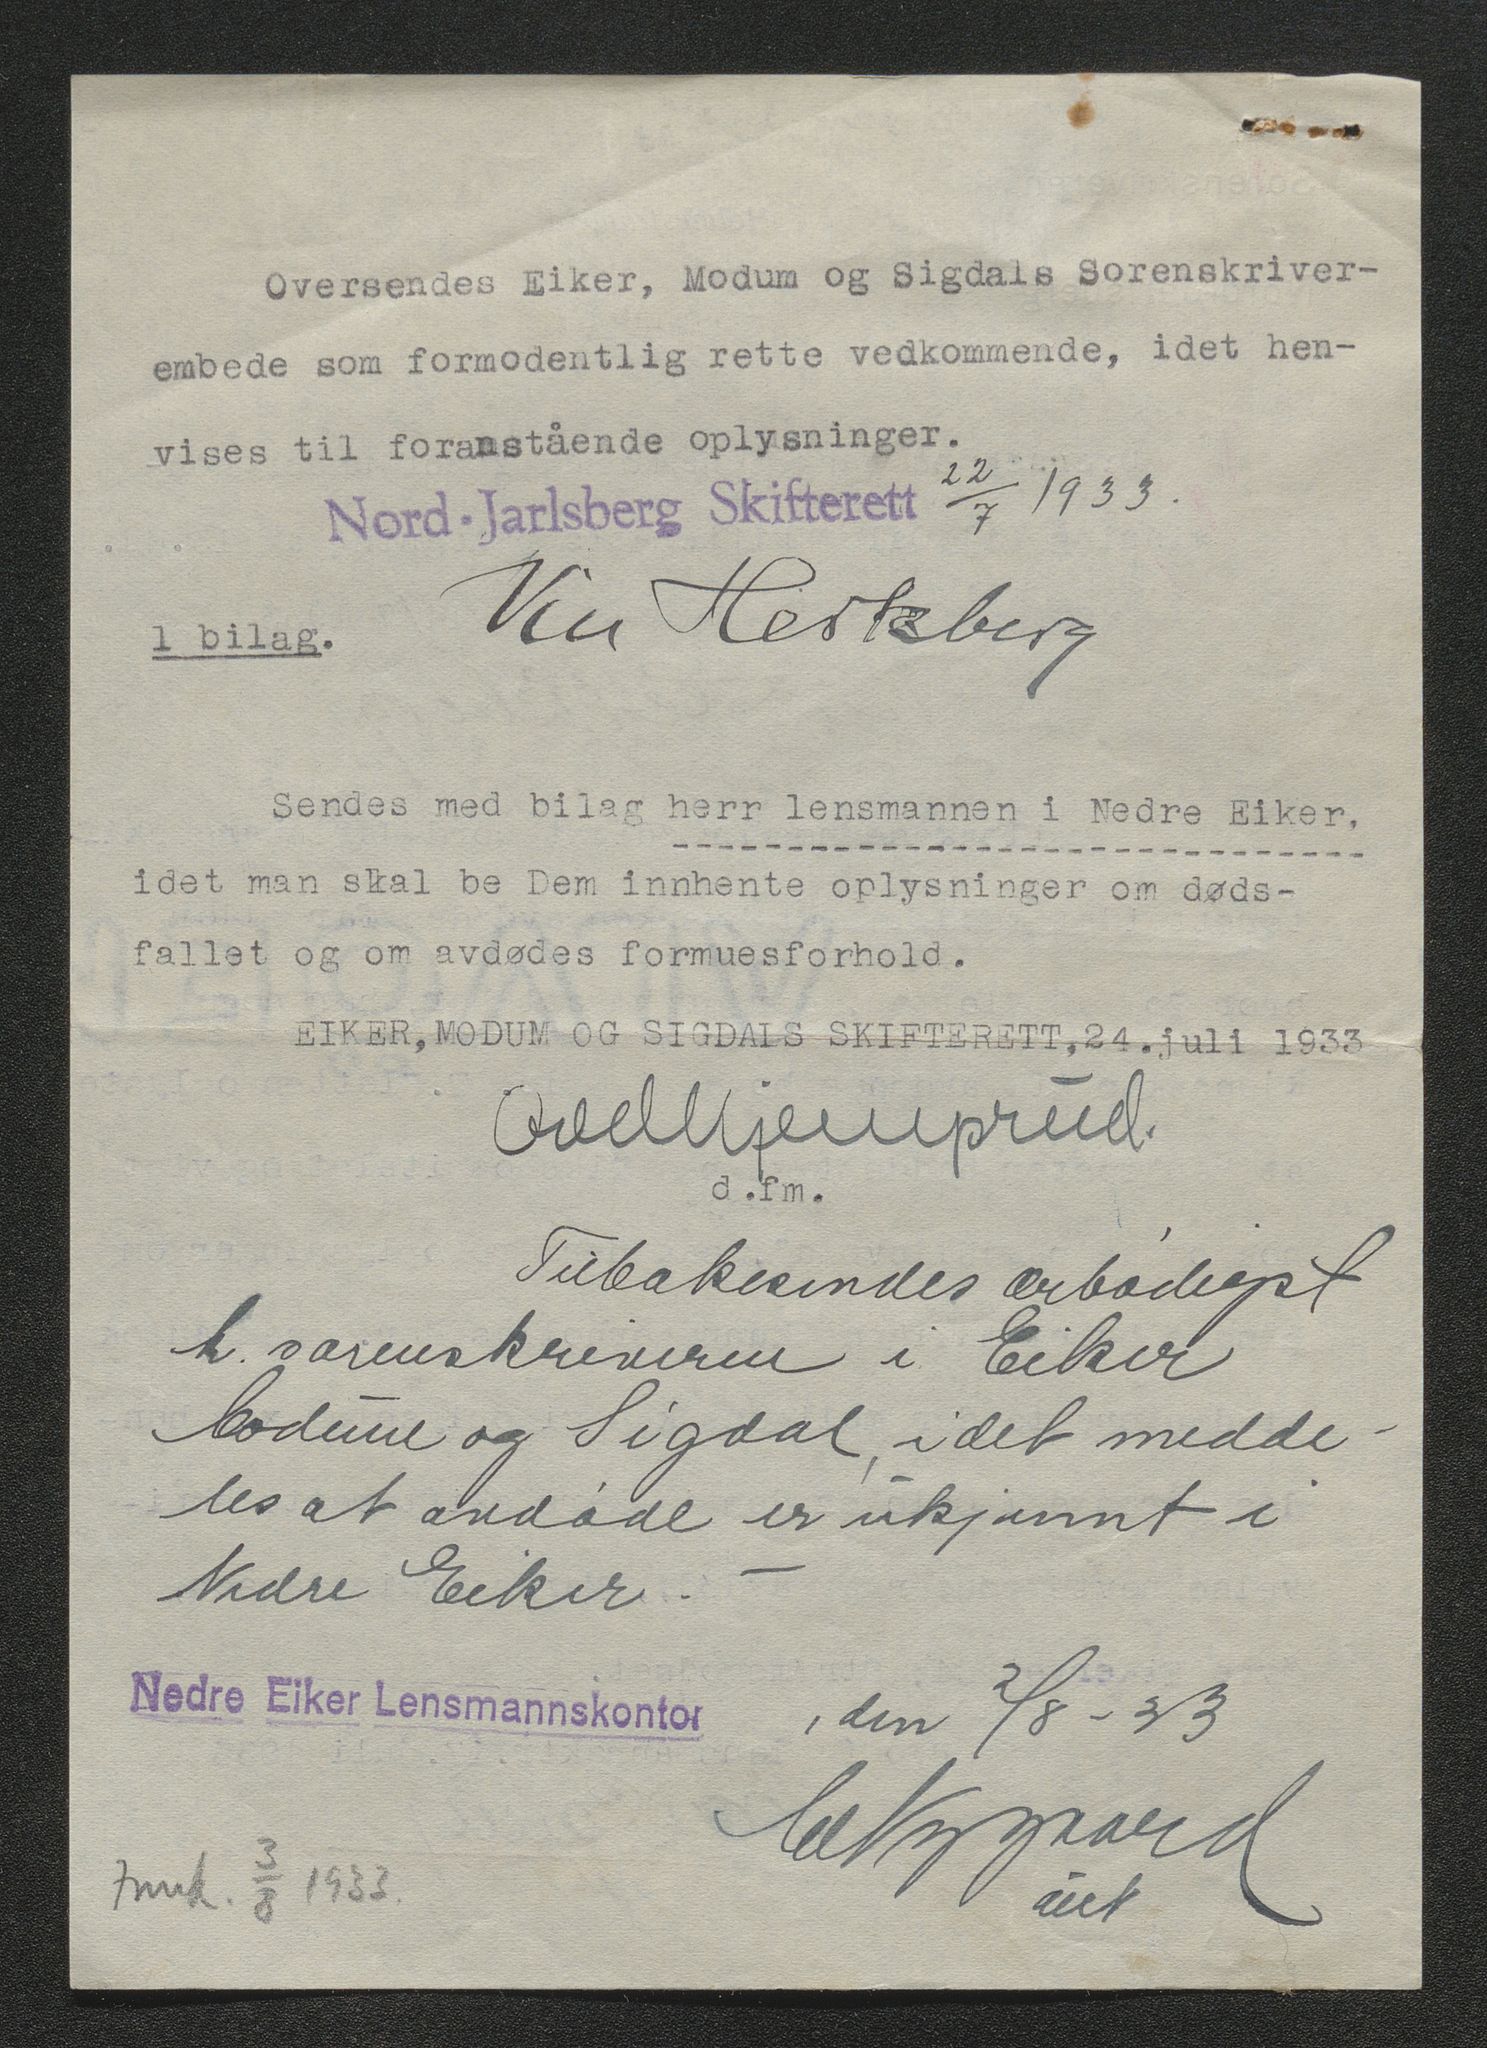 Oversendes Eiker, Modum og Sigdals Sorenskriver-
embede som formodentlig rette vedkommende, idet hen-
vises til foranstående oplysninger.
Nord-Jarlsberg Skifterett 22/7 1933.
Hertzberg
1 bilag.
Sendes med bilag herr lensmannen i Nedre Eiker,
idet man skal be Dem innhente oplysninger om døds-
fallet og om avdødes formuesforhold.
EIKER, MODUM OG SIGDALS SKIFTERETT, 24. juli 1933
d.fm.
Tilbakesendes ærbødigst
h. sorenskriveren i Eiker
Modum og Sigdal, idet medde-
les at avdøde er ukjennt i
Nedre Eiker. -
Nedre Eiker Lensmannskontor , den 2/8 - 33
Nygaard
3/8 1933.